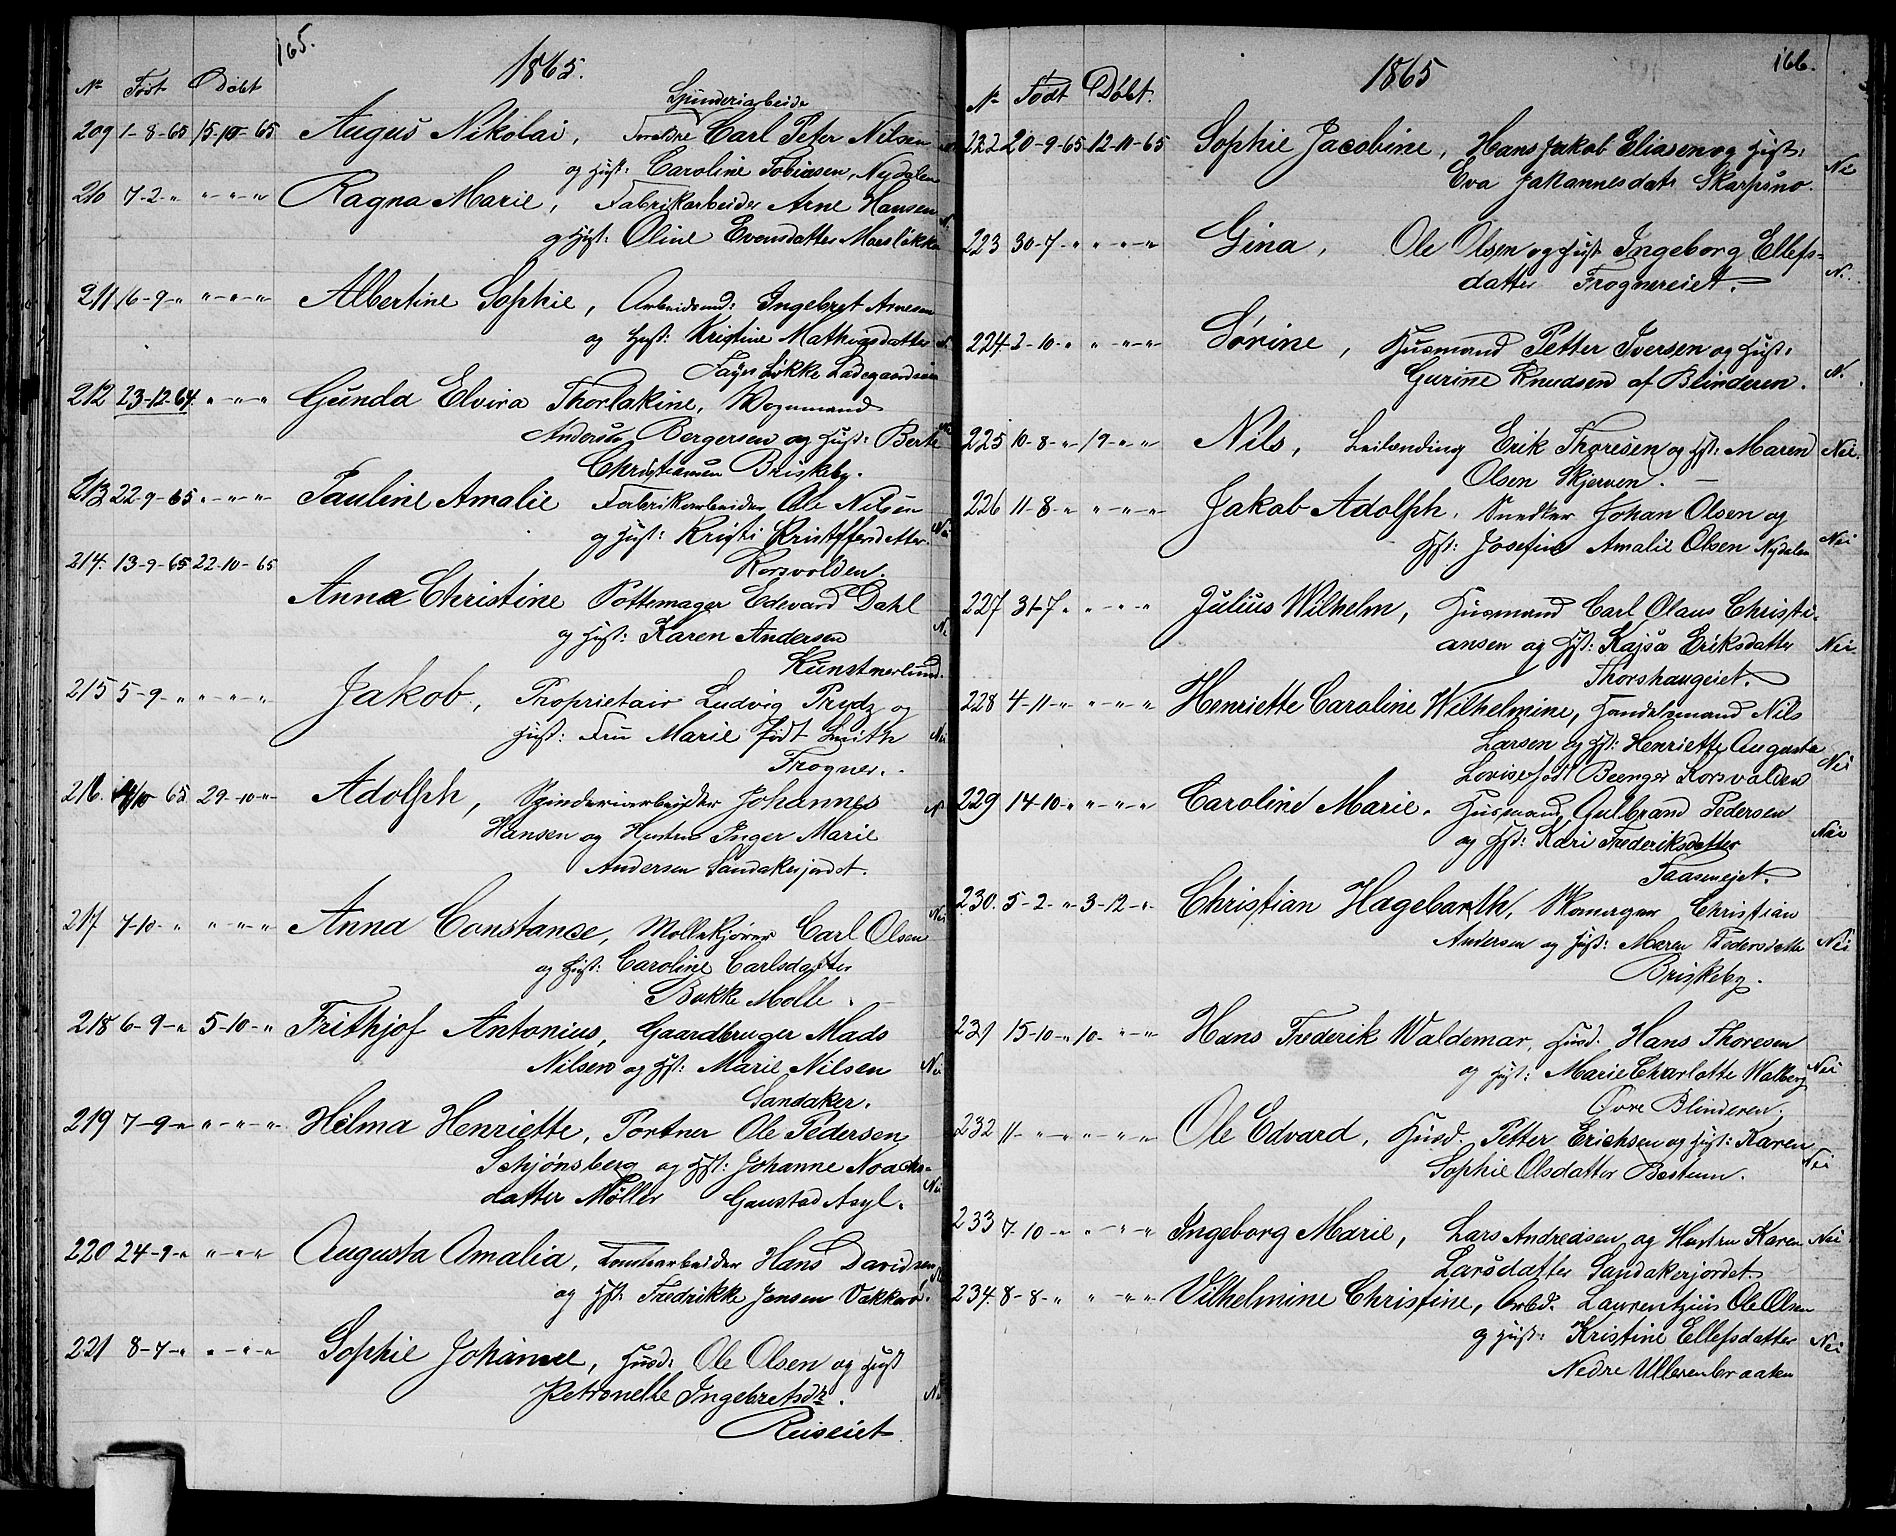 165.
1865.
No Født Døbt
Spinderiarbeide
209 1-8-65 15-10-65 Augus Nikolai, Forældre Carl Peter Nilsen
og Hust: Caroline Tobiasen, Nydalen
210 7-2-" "-"-" Ragna Marie, Fabrikarbeider Arne Hansen
og Hust: Oline Evensdatter Marsløkka
211 16-9-" "-"-" Albertine Sophie, Arbeidsmd: Ingebret Arnesen
og Hust: Kristine Mathiasdatter
Løkke Ladegaardsøen
212 23-12-64. "-"-" Gunda Elvira Thorlakine, Vognmand
Anders Bergersen og Hust: Berte
Christiansen Briskeby.
213 22-9-65 "-"-" Pauline Amalie Fabrikarbeider Ole Nilsen
og Hust: Kristi Kristoffersdatter
Korsvolden.
214. 13-9-65 22-10-65
Anna Christine Pottemager Edevard Dahl
og Hust: Karen Andersen
Kunstnerlund.
215 5-9-" "-"-" Jakob, Proprietair Ludvig Prydz og
Hust: Fru Marie født Smith
Frogner.
216. 65 29-10-" Adolph, Spinderiarbeider Johannes
Hansen og Hustru Inger Marie
Andersen Sandakerjordet.
217 7-10-" "-"-" Anna Constance, Møllekjører Carl Olsen
og Hust: Caroline Carlsdatter
Bakke Mølle.
218 6-9-" 5-10-" Frithjof Antonius, Gaardbruger Mads
Nilsen og Hst: Marie Nilsen
Sandaker.
219 7-9-" "-"-" Hilma Henriette, Portner Ole Pedersen
Schjønsberg og Hst: Johanne Noachs-
datter Møller Gaustad Asyl.
220 24-9-" "-"-" Augusta Amalia, Tomtearbeider Hans Davidsen
og Hst: Fredrikke Jensen Vækkerø.
221 8-7-" "-"-" Sophie Johanne, Husd: Ole Olsen og Hust
Petronelle Ingebretsdr.
Riiseiet
166.
1865
No Født Døbt.
222 20-9-65 12-11-65 Sophie Jacobine, Hans Jakob Eliasen og Hust:
Eva Johannesdatr Skarpsno. Nei
223 30-7-" "-"-" Gina, Ole Olsen og Hust Ingeborg Ellefs-
datter Frognereiet. N.
224. 2-10-" "-"-" Sørine, Husmand Petter Iversen og Hust:
Gurine Knudsen af Blinderen. N.
225 10-8-" 19-"-" Nils, Leilending Erik Thoresen og Hst: Maren Nei.
Olsen Skjerven.
226 11-8-" "-"-" Jakob Adolph. Snedker Johan Olsen og
Hst: Josefine Amalie Olsen Nydalen Nei
227 31-7-" "-"-" Julius Wilhelm, Husmand Carl Olaus Christi-
ansen og Hst: Kajsa Eriksdatter Nei
Thorshaugeiet.
228 4-11-" "-"-" Henriette Caroline Wilhelmine, Handelsmand Nils
Larsen og Hst: Henriette Augusta
Lovise født Beenger Korsvolden Nei
229 14-10-" "-"-" Caroline Marie. Husmand Gulbrand Pedersen
og Hst: Kari Frederiksdatter Nei
Taaseneiet.
230. 5-2-" 3-12-" Christian Hagebarth, Skomager Christian
Andersen og Hust: Maren Pedersdatter Nei
Briskeby.
231 15-10-" 10-"-" Hans Frederik Waldemar, Husd. Hans Thoresen
og Hust: Marie Charlotte Walberg Nei
Øvre Blinderen.
232 11-"-" "-"-" Ole Edvard, Husd. Petter Erichsen og Hust: Karen
Sophie Olsdatter Bestum. Nei
233 7-10-" "-"-" Ingeborg Marie, Lars Andreasen og Hustru Karen Nei
Larsdatter Sandakerjordet
234. 8-8-" "-"-" Vilhelmine Christine, Arbd. Laurentzius Ole Olsen
og Hust: Kristine Ellefsdatter Nei
Nedre Ullerenbraaten